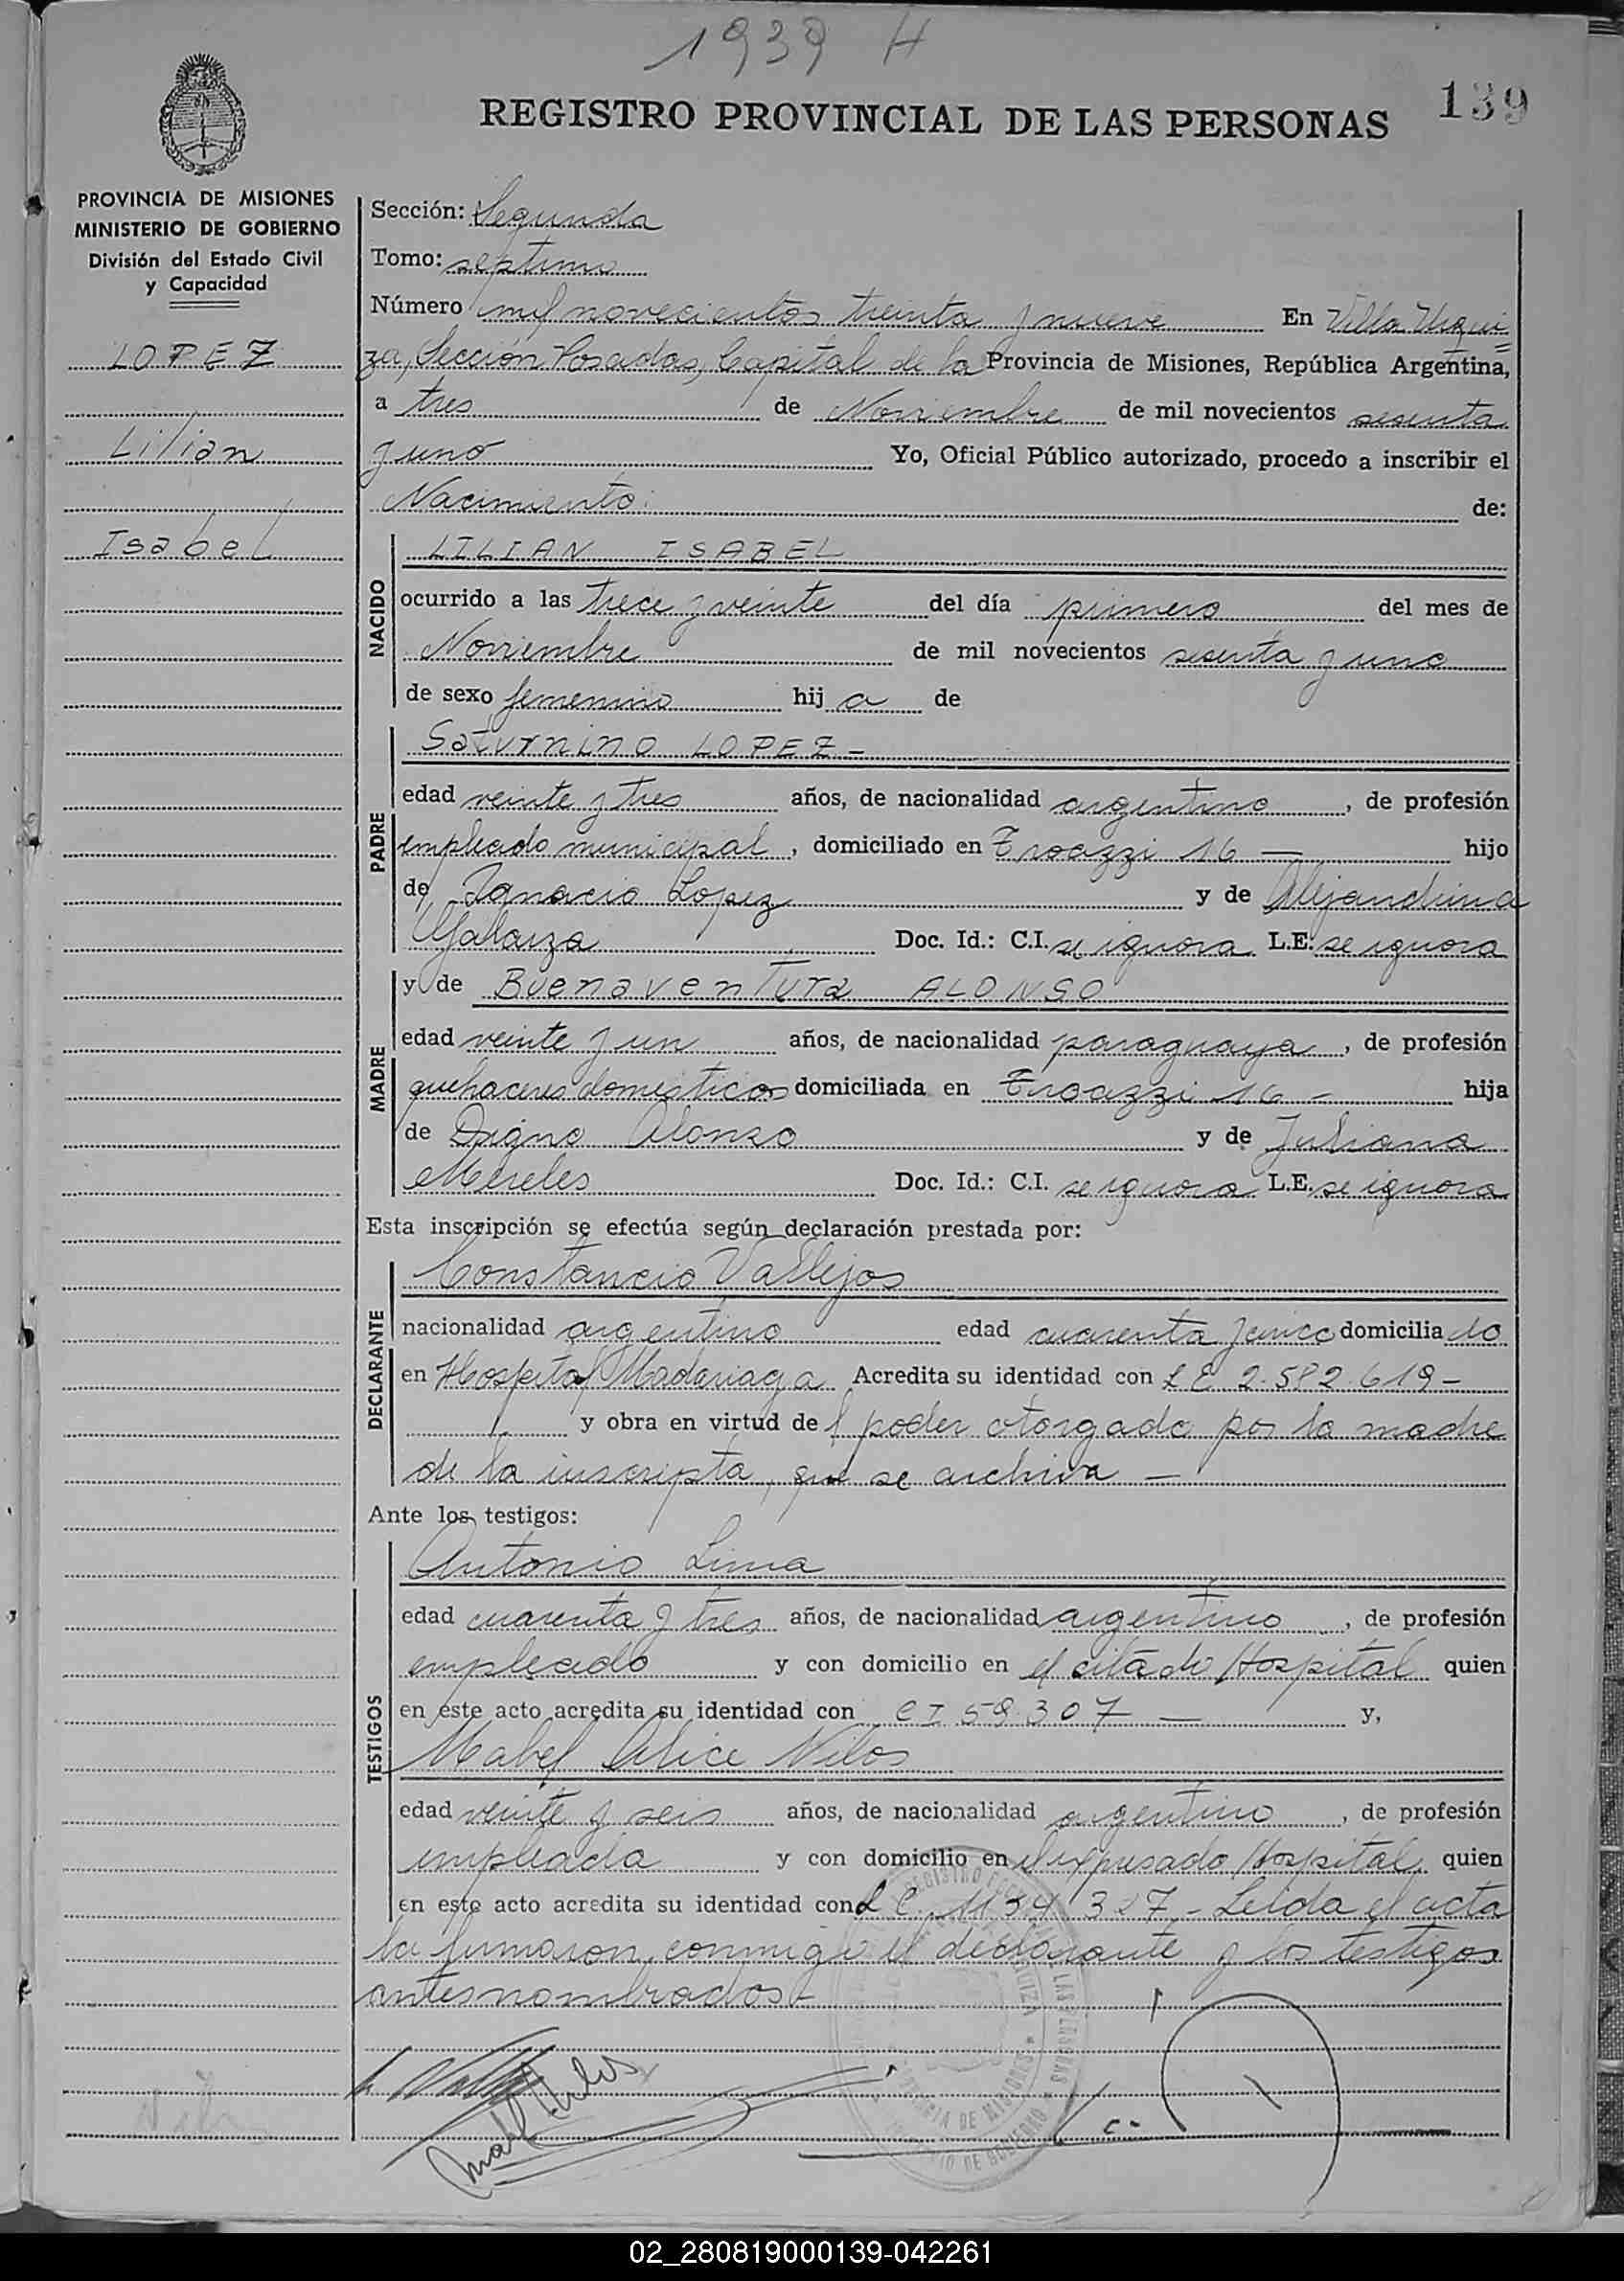 1939 H
139
REGISTRO PROVINCIAL DE LAS PERSONAS
PROVINCIA DE MISIONES
MINISTERIO DE GOBIERNO
División del Estado Civil
y Capacidad
LOPEZ
Lilian
Isabel
Sección: Segunda
Tomo: septimo
Número mil novecientos treinta y nueve En Villa Urqui=
za, Sección Posadas, Capital de la Provincia de Misiones, República Argentina,
a tres de Noviembre de mil novecientos sesenta
y uno Yo, Oficial Público autorizado, procedo a inscribir el
Nacimiento: de:
NACIDO
LILIAN ISABEL
ocurrido a las trece y veinte del día primero del mes de
Noviembre de mil novecientos sesenta y uno
de sexo femenino hija de
PADRE
Saturnino LOPEZ -
edad veinte y tres años, de nacionalidad argentino, de profesión
empleado municipal, domiciliado en Troazzi 16 — hijo
de Ignacio Lopez y de Alejandrina
Galarza Doc. Id.: C.I. se ignora L.E: se ignora
MADRE
y de Buenaventura ALONSO
edad veinte y un años, de nacionalidad paraguaya, de profesión
quehaceres domesticos domiciliada en Troazzi 16 - hija
de Digno Alonzo y de Juliana
Mereles Doc. Id.: C.I. se ignora L.E. se ignora
Esta inscripción se efectúa según declaración prestada por:
DECLARANTE
Constancio Vallejos
nacionalidad argentino edad cuarenta y cinco domiciliado
en Hospital Madariaga Acredita su identidad con L E 2.582.619-
y obra en virtud del poder otorgado por la madre
de la inscripta, que se archiva —
Ante los testigos:
TESTIGOS
Antonio Lima
edad cuarenta y tres años, de nacionalidad argentino, de profesión
empleado y con domicilio en el citado Hospital quien
en este acto acredita su identidad con C I 59.307 — y,
Mabel Alice Nilos
edad veinte y seis años, de nacionalidad argentino, de profesión
empleada y con domicilio en el expresado Hospital quien
en este acto acredita su identidad con L C. 1134327 - Leida el acta
la firmaron conmigo el declarante y los testigos
antesnombrados-
02_280819000139-042261